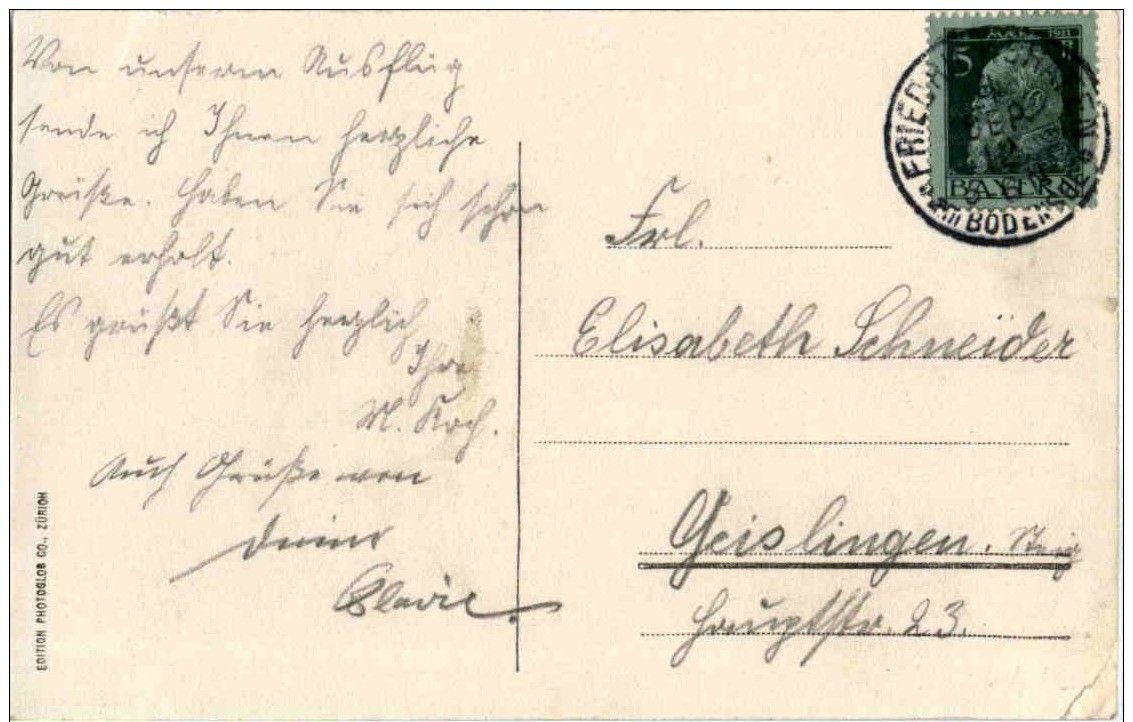 Von unserm Ausflug
sende ich Ihnen herzliche
Grüße. Haben Sie sich schon
gut erholt.
Es grüßt Sie herzlich
Ihre
M. Koch.
Auch Grüße von
Deiner
5 1911
BAYERN
FRIEDRICHSHAFEN
am BODENSEE
Frl.
Elisabeth Schneider
Geislingen. Steig
Hauptstr. 23.
EDITION PHOTOGLOB CO., ZÜRICH